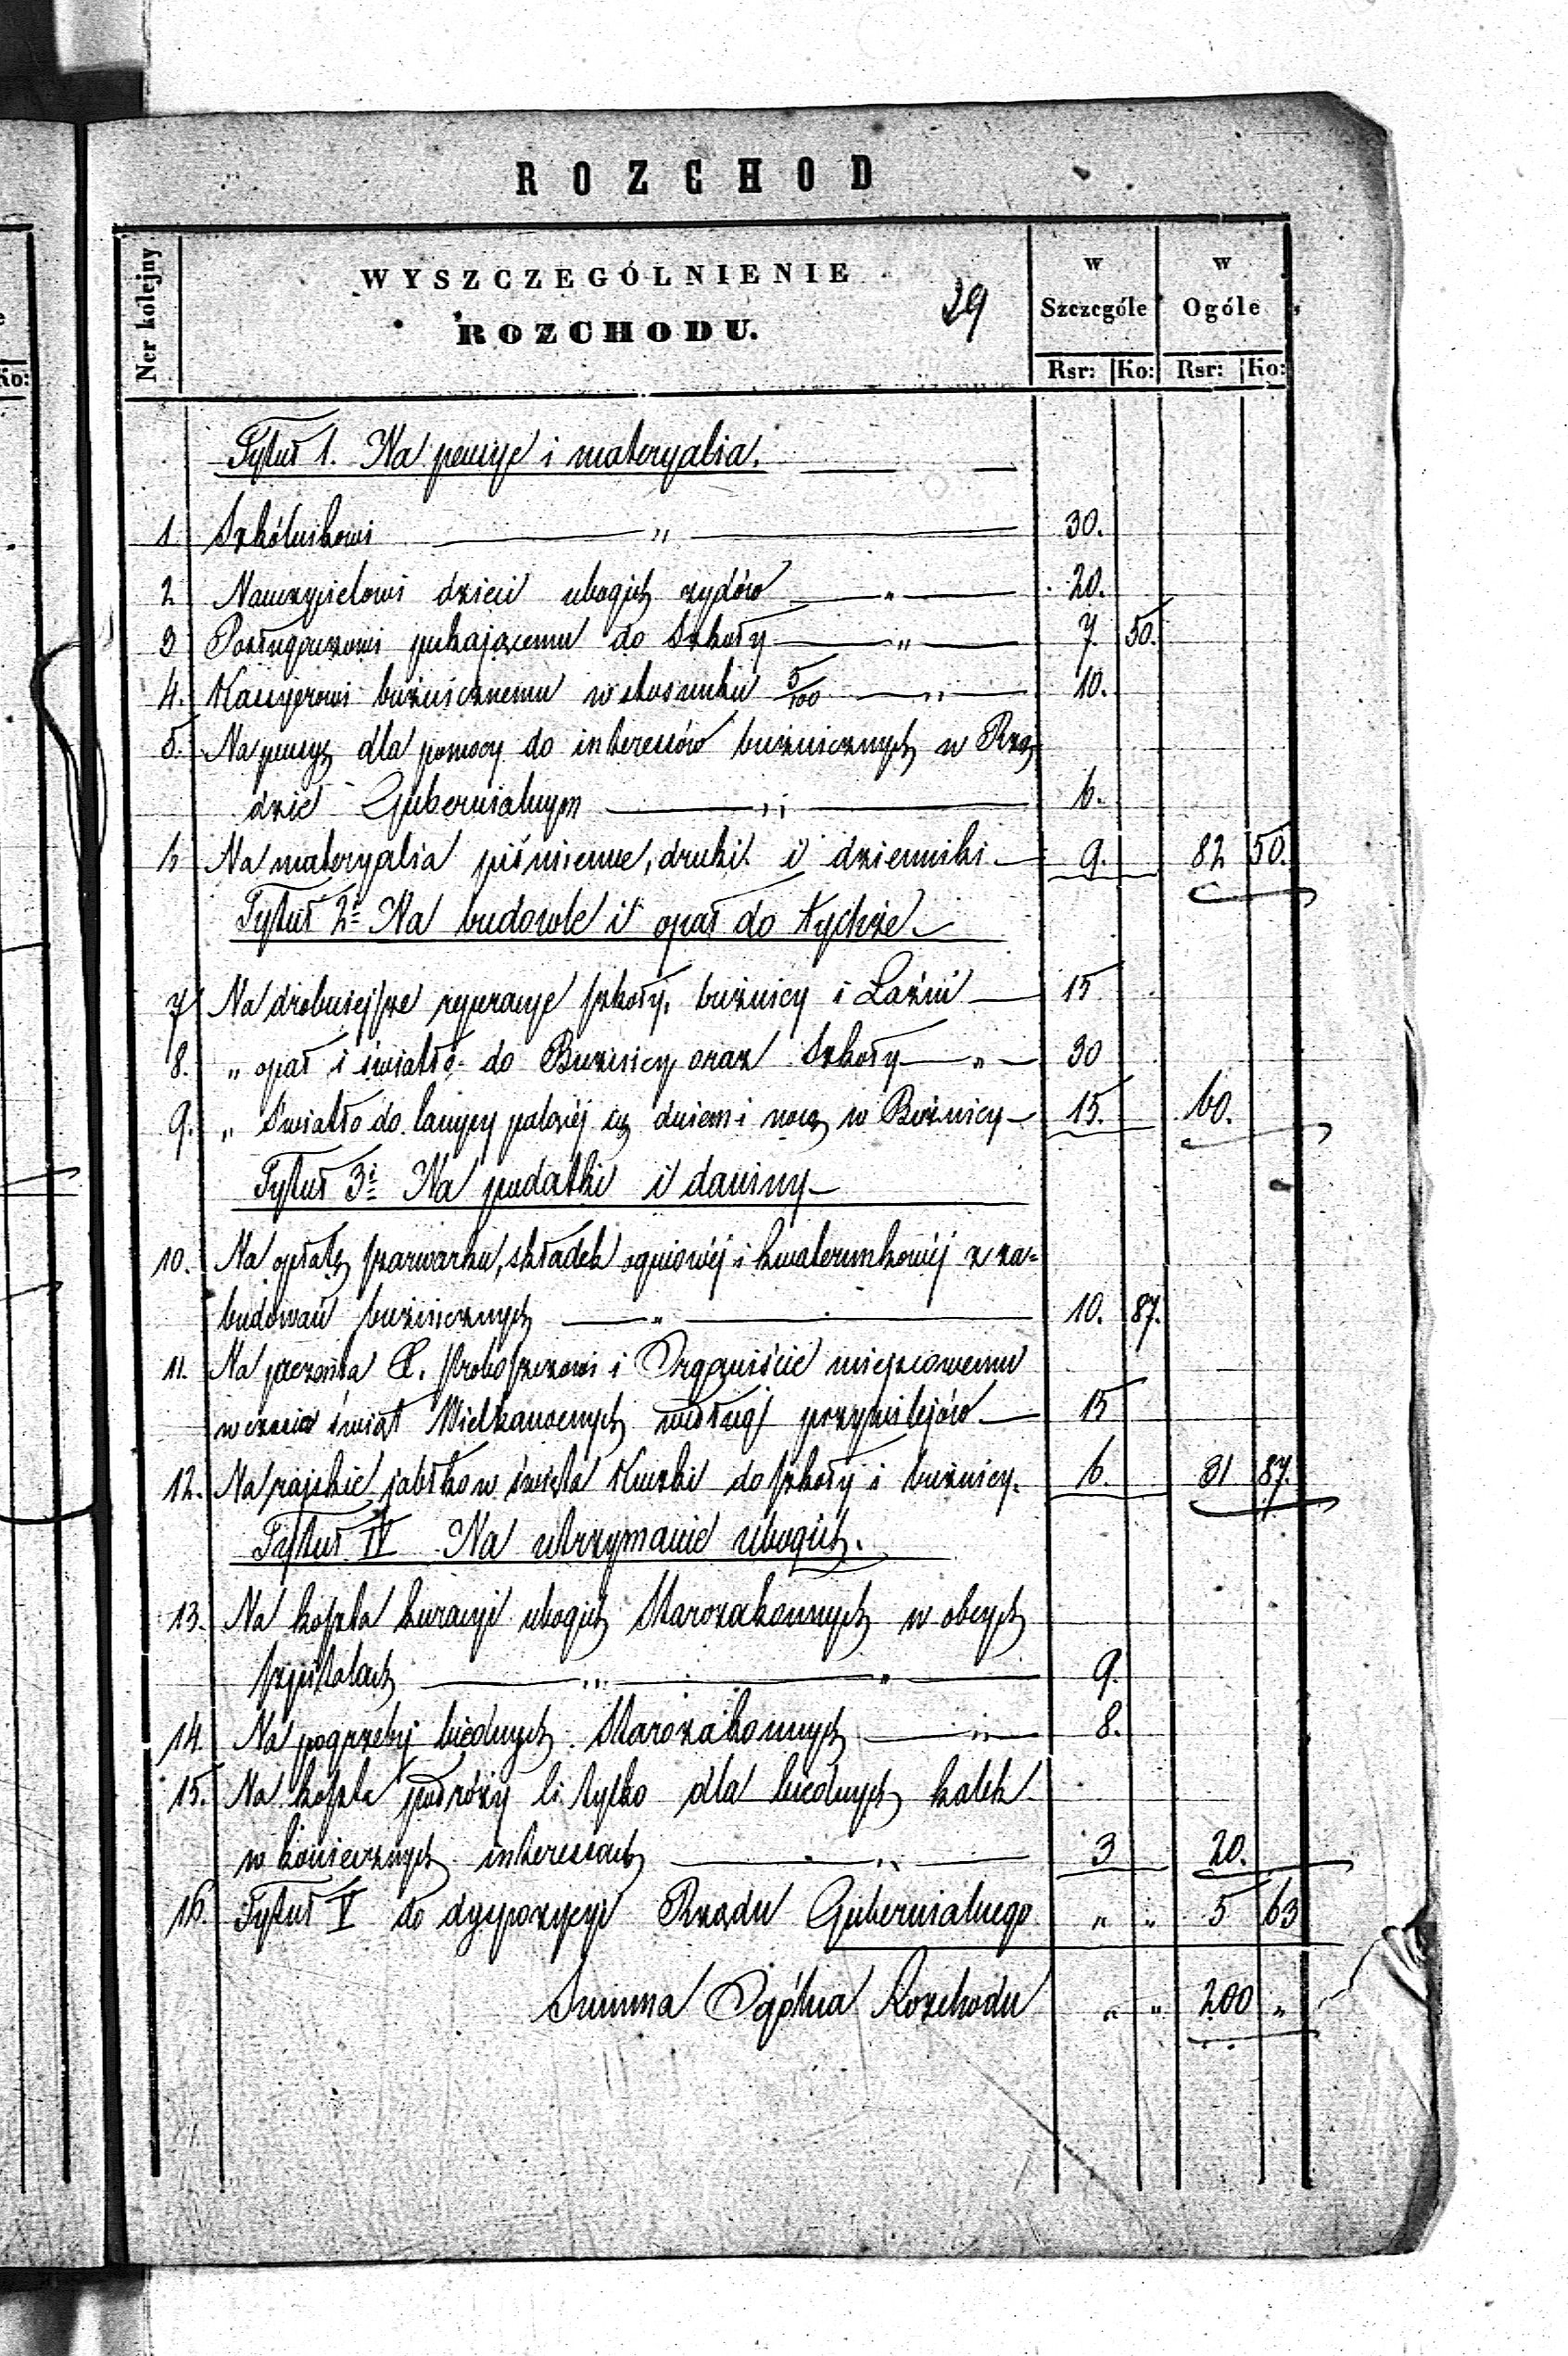 ROZCHOD
Ner kolejny
WYSZCZEGÓLNIENIE
ROZCHODU.
29
w Szczególe
w Ogóle
Rsr: Ko: Rsr: Ko:
Ko:
Tytuł 1. Na pensye i materyalia.
1. Szkólnikowi — " — 30.
2 Nauczycielowi dzieci ubogich zydów — " — 20.
3 Posługaczowi pukającemu do Szkoły — " — 7. 50.
4. Kassyerowi bużnicznemu w stosunku 5/100 — " — 10.
5. Na pensyę dla pomocy do interessów bużnicznych w Rzą
dzie Gubernialnym — " — 6.
6 Na materyalia piśmienne, druki i dzienniki — 9. 82 50.
Tytuł 2i Na budowle i opał do tychże —
7 Na drobniejsze reperacye szkoły, bużnicy i Łaźni — 15
8. " opał i światło do Bużnicy oraz Szkoły — " — 30
9. " Światło do lampy palącej się dniem i nocą w Bużnicy — 15. 60.
Tytuł 3i Na podatki i daniny —
10. Na opłatę szarwarku, składek ogniowéj i kwaterunkowéj z za=
budowań bużnicznych — " — 10. 87.
11. Na poczęsta X. Proboszczowi i Organiście miejscowemu
w czasie świąt Wielkanocnych według przywilejów — 15
12. Na rajskie jabłko w święta Kuczki do szkoły i bużnicy. 6. 31 87.
Tytuł IV Na utrzymanie ubogich.
13. Na koszta kuracyi ubogich Starozakonnych w obcych
szpitalach — " — " — 9.
14. Na pogrzeby biednych Starozakonnych — " — 8.
15. Na koszta podróży li tylko dla biednych kalek
w koniecznych interessach — " — 3 20.
16. Tytuł V do dyspozycyi Rządu Gubernialnego " " 5 63
Summa Ogólna Rozchodu " " 200 "